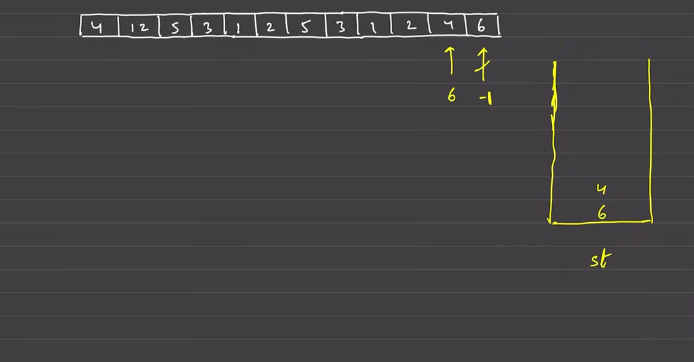 4 12 5 3 1 2 5 3 1 2 4 6
6 -1
4
6
st